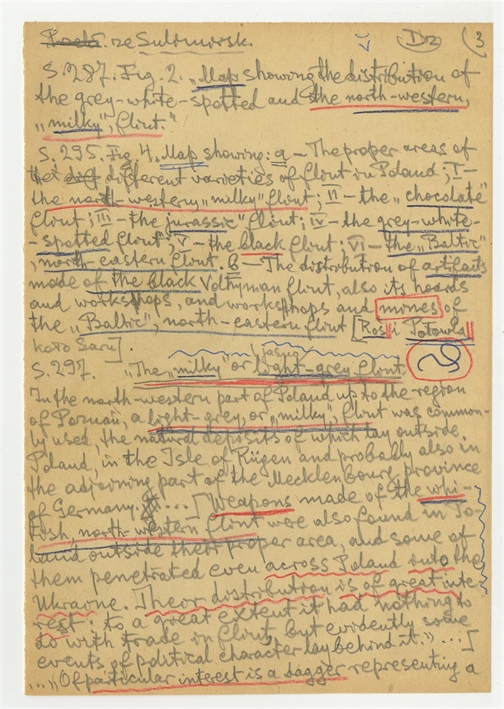 ze Sulimirsk. Dz (3
S. 287. Fig. 2. „Map showing the distribution of
the grey-white-spotted and the north-western,
„milky", flint."
S. 295. Fig. 4. Map showing: a – The proper areas of
the different varieties of flint in Poland; I –
the north-western „milky" flint; II – the „chocolate"
flint; III – the jurassic flint; IV – the grey-white-
-spotted flint; V – the black flint; VI – the „Baltic",
north-eastern flint. b – The distribution of artifacts
made of the black Volhynian flint, also its hoards
and workshops, and workshops and mines of
the „Baltic", north-eastern flint [Rosi Potowla
koło Sarn].
S. 297. „The „milky" or light-grey flint. jasny
In the north-western part of Poland up to the region
of Poznań, a light-grey, or „milky" flint was common-
ly used, the natural deposits of which lay outside
Poland, in the Isle of Rügen and probably also in
the adjoining part of the Mecklenbourg province
of Germany. ...] Weapons made of the whi-
tish, north-western flint were also found in Po-
land outside their proper area, and some of
them penetrated even across Poland into the
Ukraine. Their distribution is of great inte-
rest: to a great extent it had nothing to
do with trade in flint, but evidently some
events of political character lay behind it." ...]
...„Of particular interest is a dagger representing a